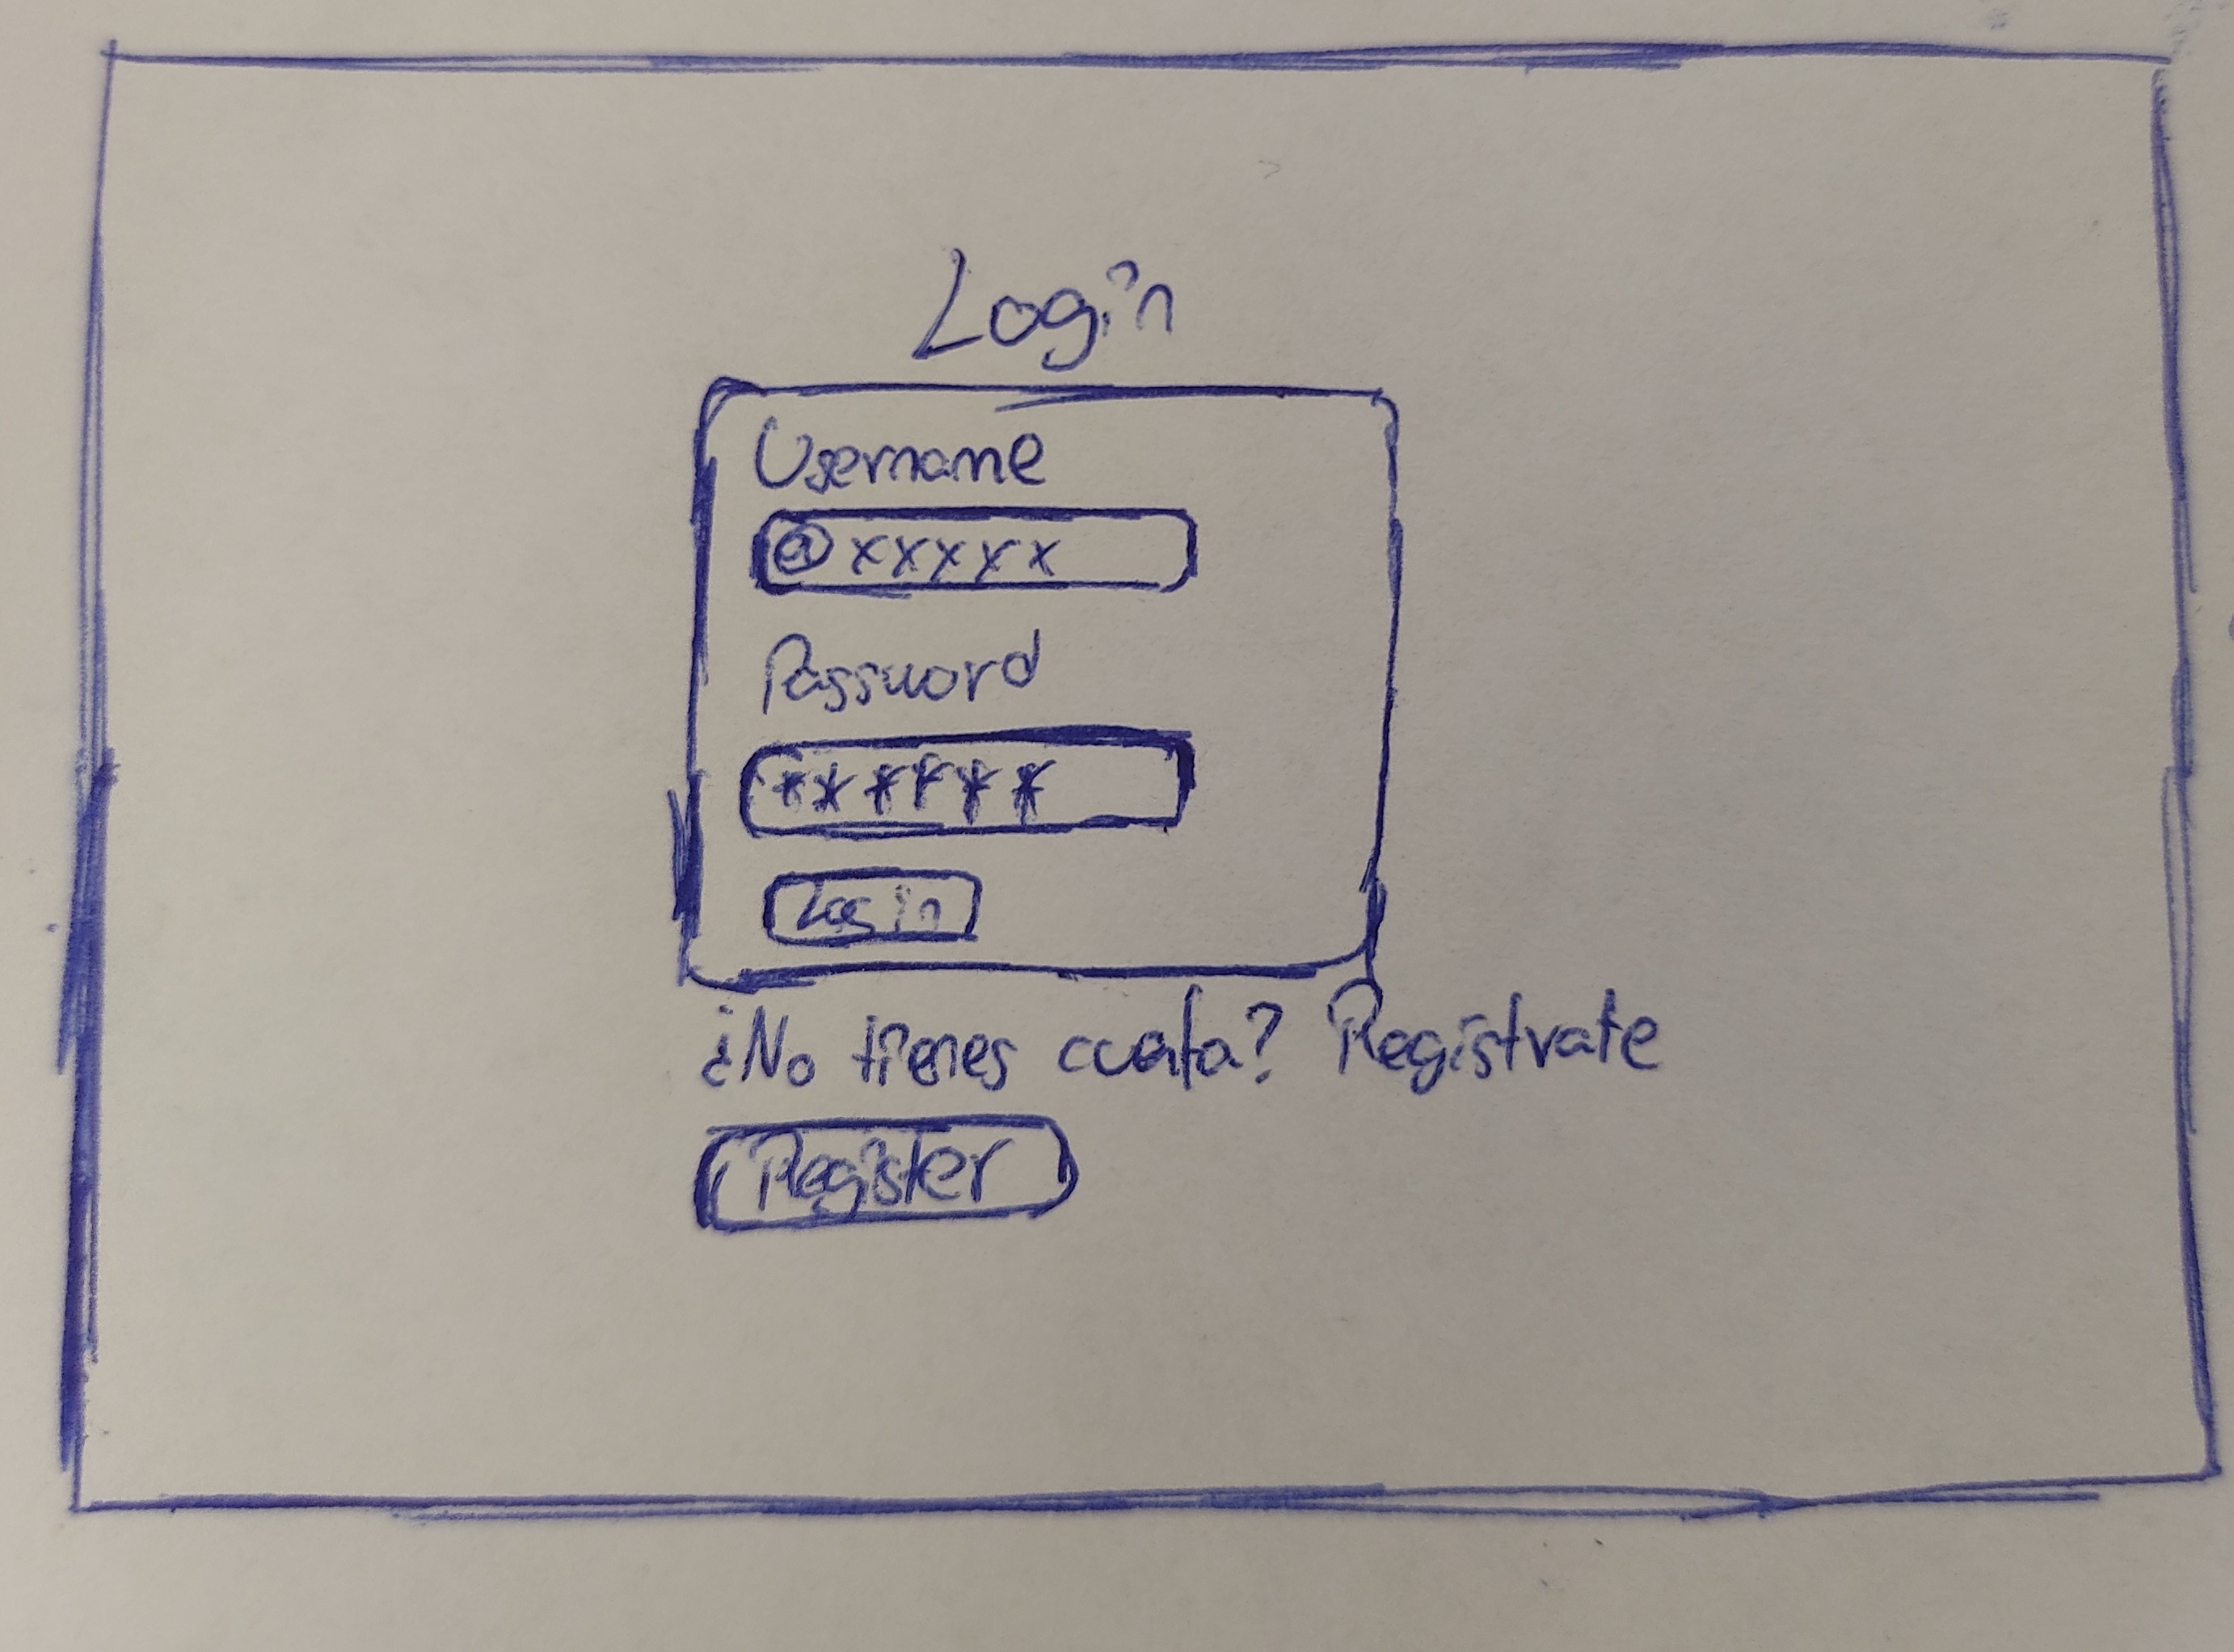 Login
Username
@xxxxx
Password
******
Login
¿No tienes cuenta? Registrate
Register